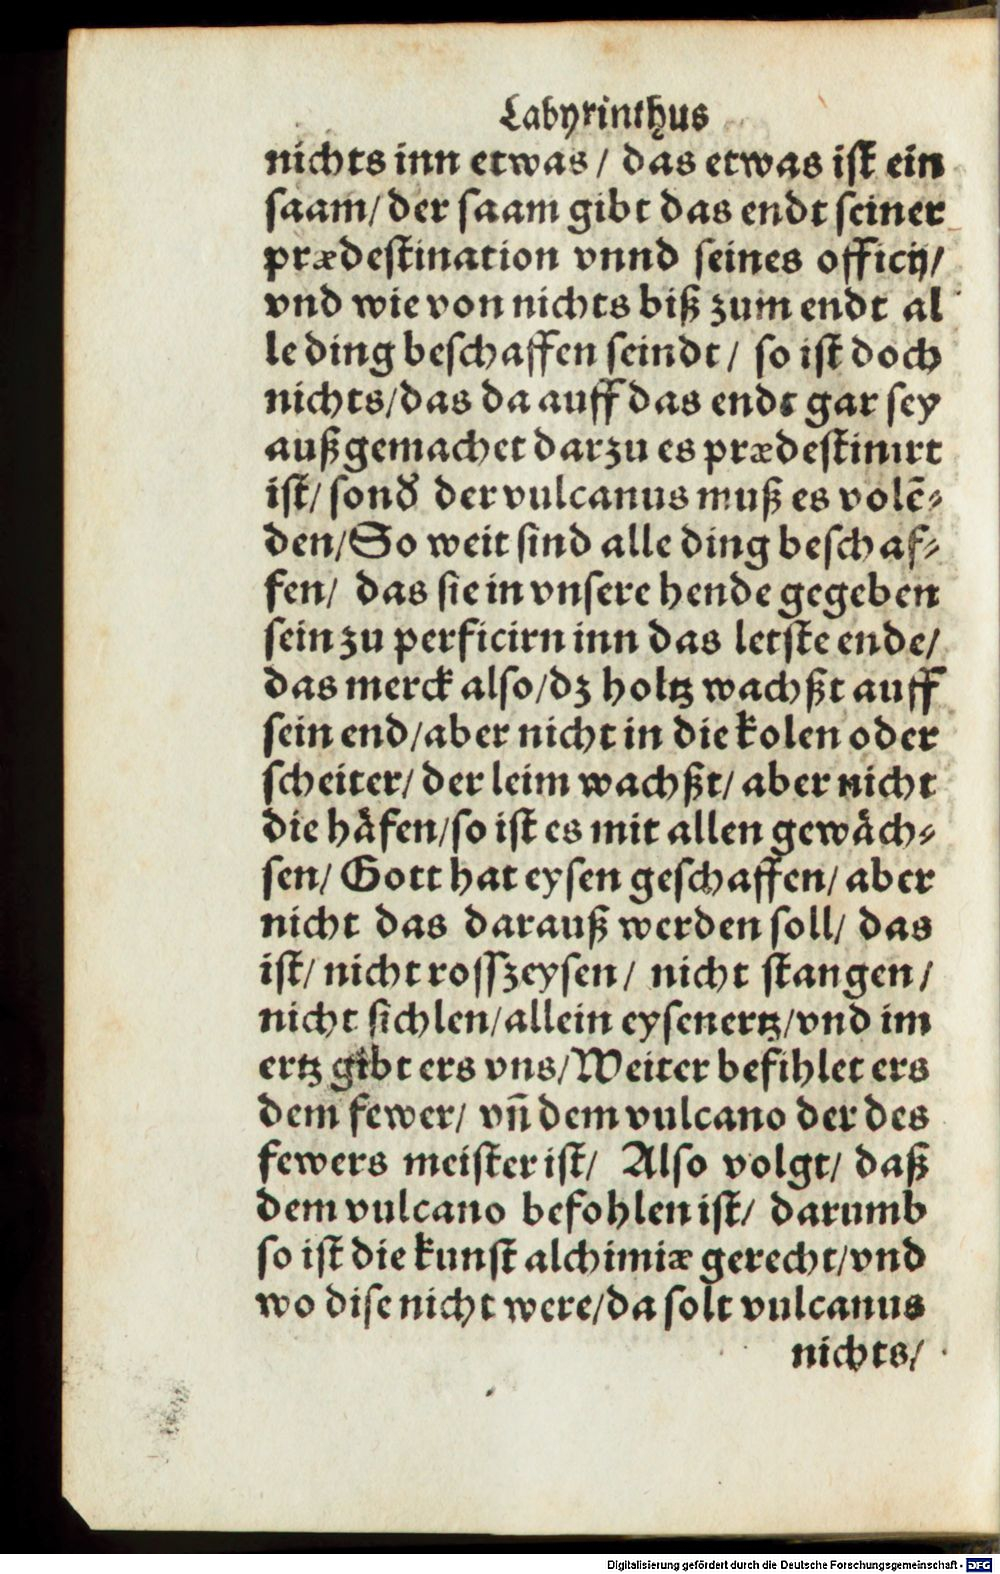 Labyrinthus
nichts inn etwas/ das etwas ist ein
saam/ der saam gibt das endt seiner
prædestination vnnd seines officij/
vnd wie von nichts biß zum endt al
le ding beschaffen seindt/ so ist doch
nichts/das da auff das endt gar sey
außgemachet darzu es prædestinirt
ist/ sond̛ der vulcanus muß es volē⸗
den/So weit sind alle ding beschaf⸗
fen/ das sie in vnsere hende gegeben
sein zu perficirn inn das letste ende/
das merck also/dz holtz wachßt auff
sein end/aber nicht in die kolen oder
scheiter/ der leim wachßt/ aber nicht
die häfen/so ist es mit allen gewäch⸗
sen/ Gott hat eysen geschaffen/ aber
nicht das darauß werden soll/ das
ist/ nicht rosszeysen/ nicht stangen/
nicht sichlen/allein eysenertz/vnd im
ertz gibt ers vns/Weiter befihlet ers
dem fewer/ vñ dem vulcano der des
fewers meister ist/ Also volgt/ daß
dem vulcano befohlen ist/ darumb
so ist die kunst alchimiæ gerecht/vnd
wo dise nicht were/da solt vulcanus
nichts/
Digitalisierung gefördert durch die Deutsche Forschungsgemeinschaft - DFG